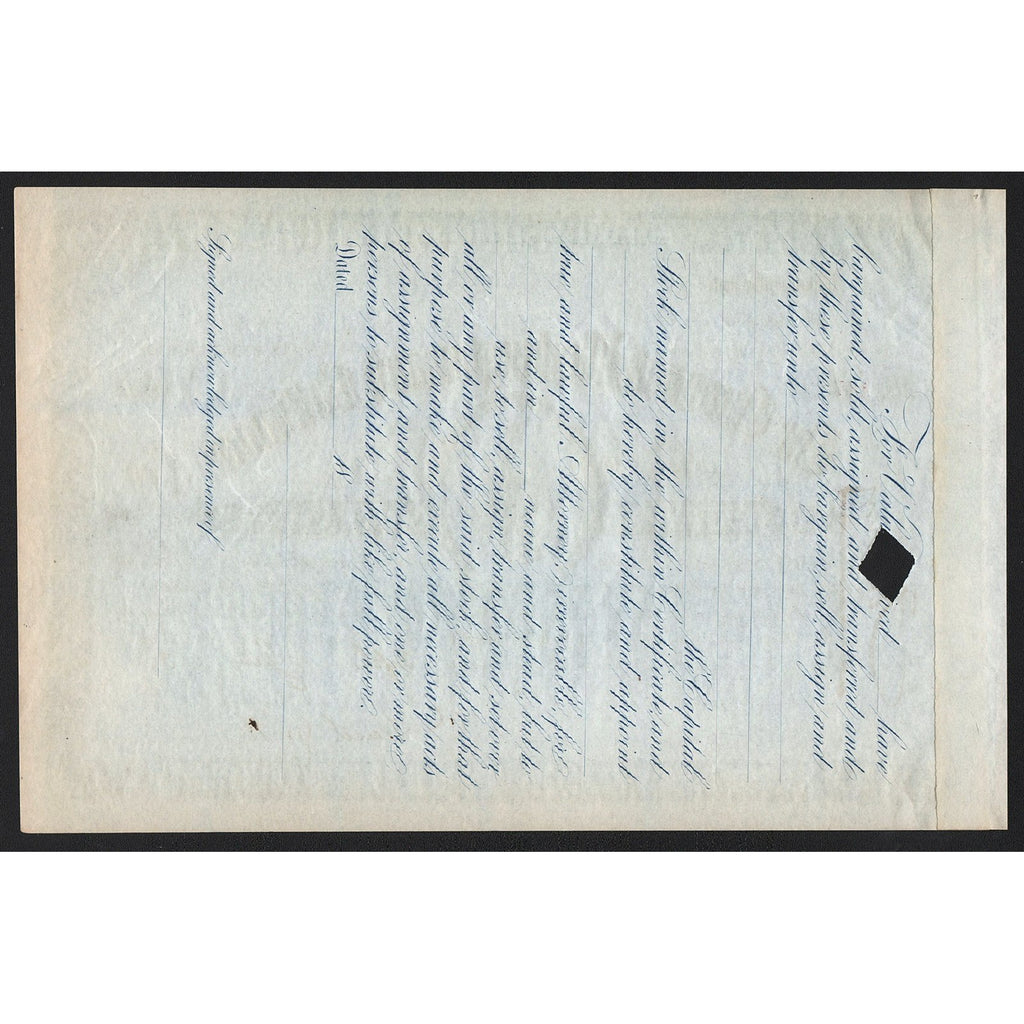 For Val ed have
bargained, sold, assigned and transferred and
by these presents do bargain, sell, assign and
transfer unto
the Capital
Stock named in the within Certificate and
do hereby constitute and appoint
true and lawful Attorney, irrevocable, for
and in name and stead, but to
use, to sell, assign, transfer and set over
all or any part of the said stock, and for that
purpose to make and execute all necessary acts
of assignment and transfer, and one or more
persons to substitute with like full power.
Dated 18
Signed and acknowledged in presence of